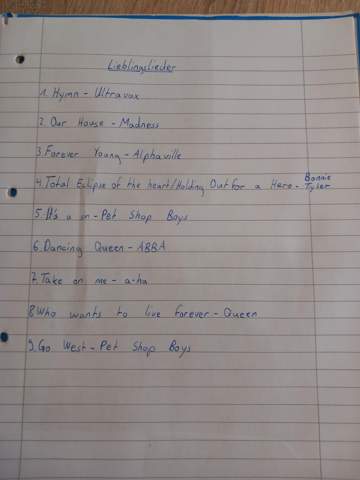 Lieblingslieder
1. Hymn - Ultravox
2. Our House - Madness
3. Forever Young - Alphaville
4. Total Eclipse of the heart/Holding Out for a Hero - Bonnie Tyler
5. It's a in - Pet Shop Boys
6. Dancing Queen - ABBA
7. Take on me - a-ha
8. Who wants to live forever - Queen
9. Go West - Pet Shop Boys